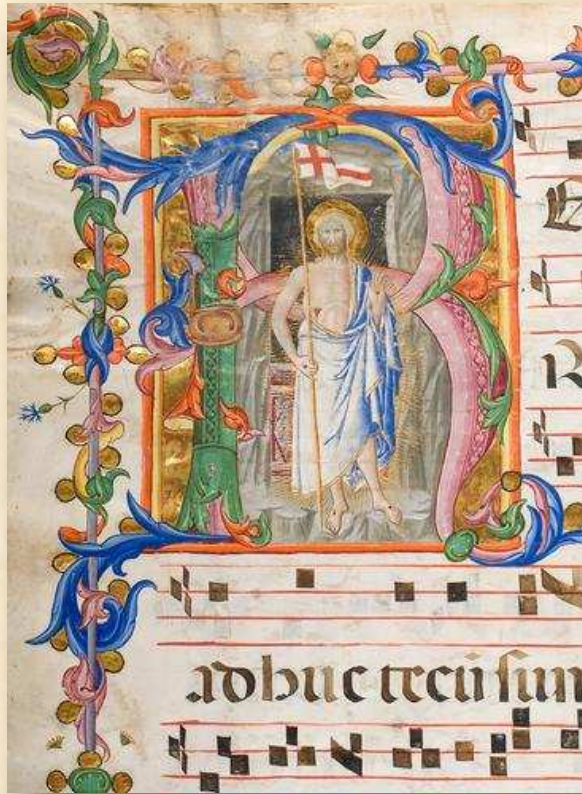 RE
R
adhuc tecū ſum